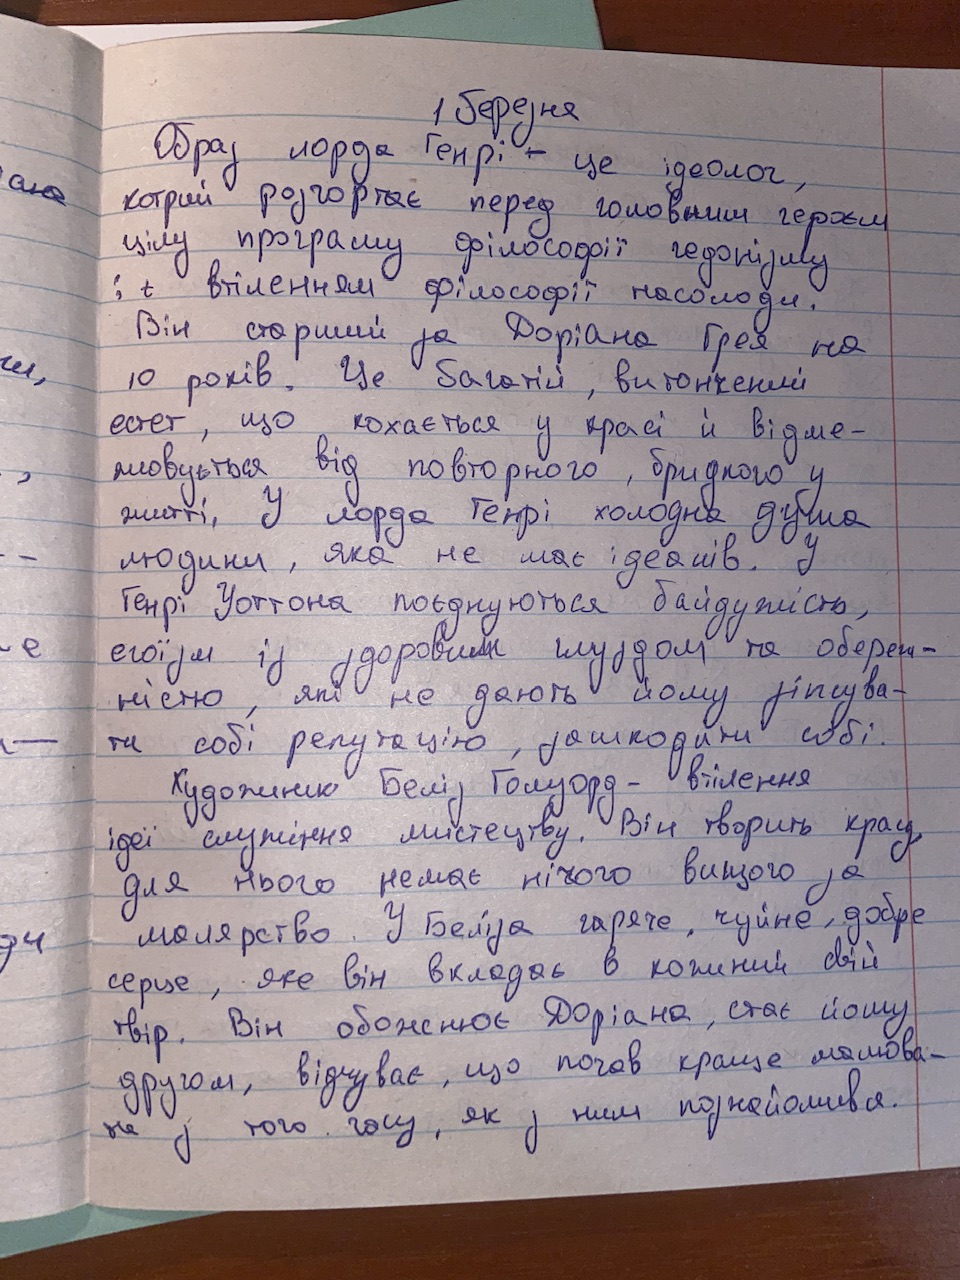 1 березня
Образ лорда Генрі - це ідеолог,
котрий розгортає перед головним героєм
цілу програму філософії гедонізму
і є втіленням філософії насолоди.
Він старший за Доріана Грея на
10 років. Це багатій, витончений
естет, що кохається у красі й відме-
жовується від повторного, бридкого у
житті, У лорда Генрі холодна душа
людини, яка не має ідеалів. У
Генрі Уоттона поєднуються байдужість,
егоїзм із здоровим глуздом та обереж-
ністю, які не дають йому зіпсува-
ти собі репутацію, зашкодити собі.
Художник Безіл Голуорд - втілення
ідеї служіння мистецтву. Він творить красу,
для нього немає нічого вищого за
малярство. У Безіла гаряче, чуйне, добре
серце, яке він вкладає в кожний свій
твір. Він обожнює Доріана, стає йому
другом, відчуває, що почав краще малюва-
ти з того часу, як з ним познайомився.